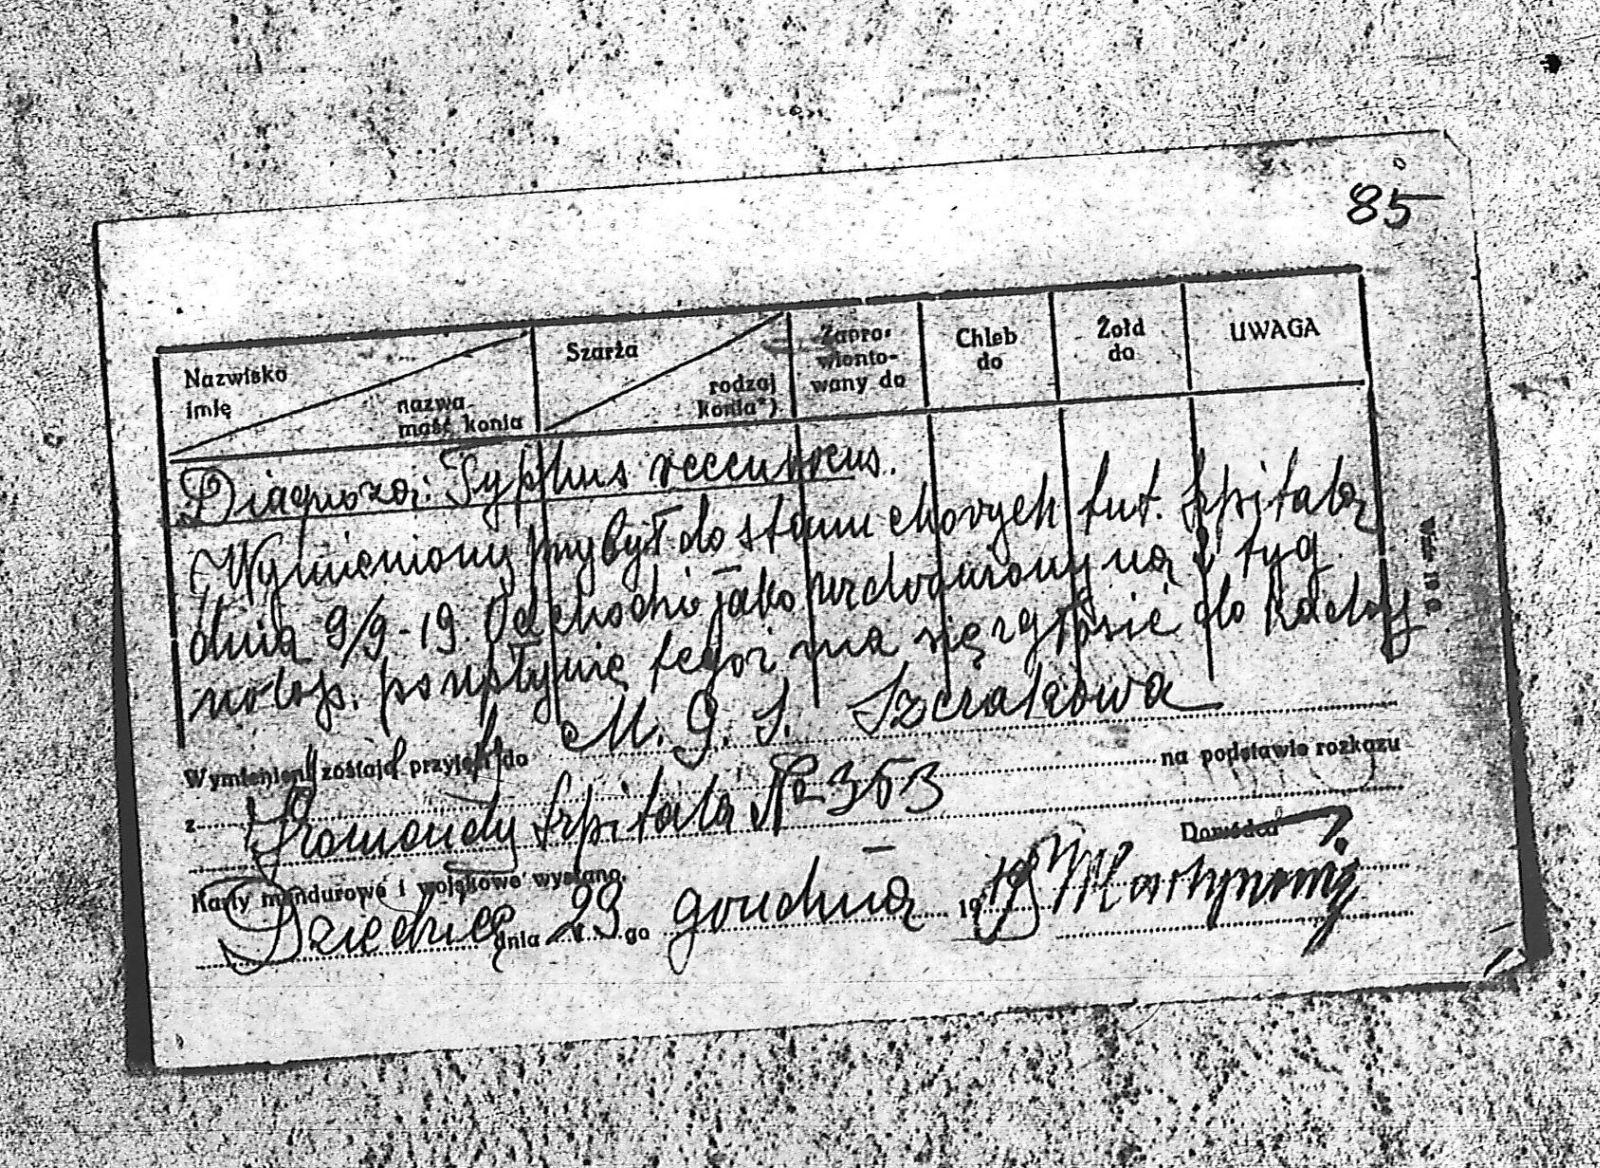 85
Nazwisko
imię
nazwa
maść konia
Szarża
rodzaj
konia*)
Zapro-
wianto-
wany do
Chleb
do
Żołd
do
UWAGA
Diagnoza: Typhus reccurrens.
Wymieniony przybył do stanu chorych tut. szpitala
dnia 9/9-19. Odchodzi jako uzdrowiony na tyg.
po upłynię tegoż ma się zgłosić do Kadry
M. G. S. Szczakowa
Wymienieni zostają przyjęci do
z na podstawie rozkazu
Komendy szpitala № 353
Dowódca
Karty mundurowe i wojskowe wysłano.
Dziedzice dnia 29 go grudnia 19 19